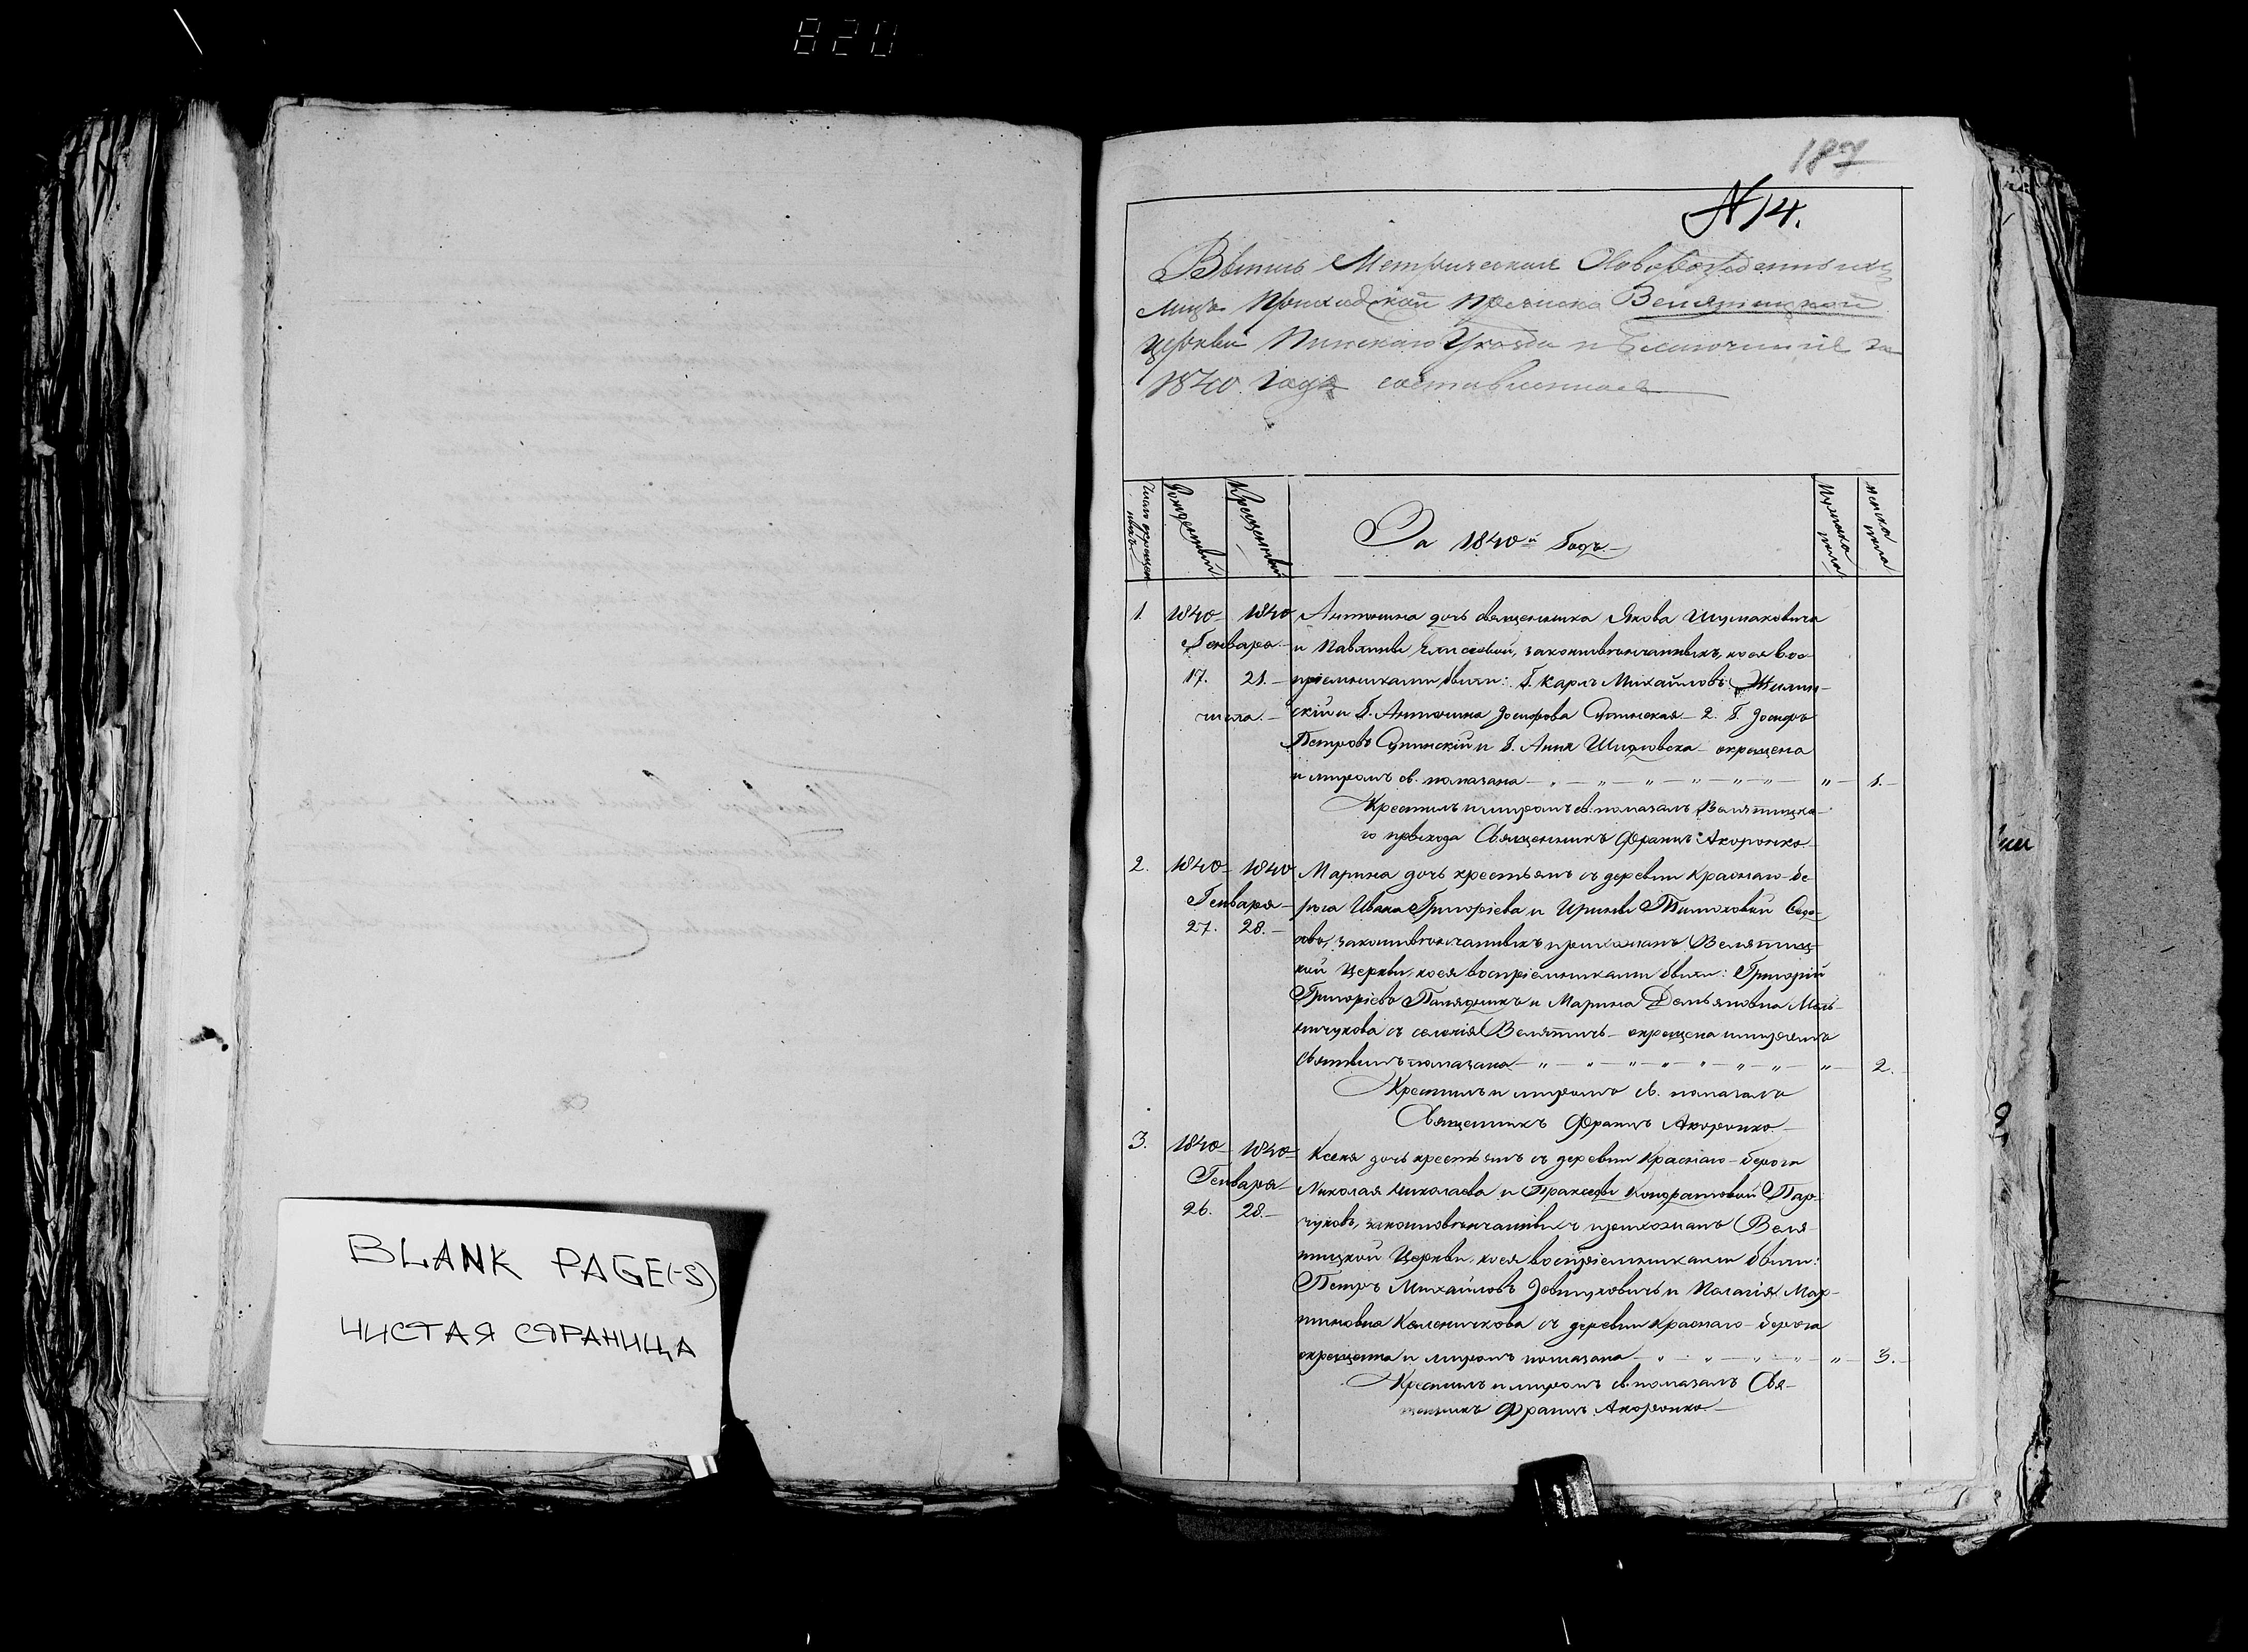 820
187
N 14.
Выпись Метрическая Новорожденныхъ
лицъ Приходской Велятицкой
Церкви Пинскаго Уезда и Благочинія за
1840 годъ составленная
Рожденный
Крещенный
За 1840й Годъ
Мужеска пола
женска пола
1. 1840 1840 Антонина дочь священника Якова Шумаковича
Генваря и Павлины законновенчанныхъ, коея вос-
17. 21. пріемниками были: Г. Карлъ Михайловъ Жилин-
числа скій и Г. Антонина Іосифова 2. Г. Іосифъ
Петровъ и Г. Анна окрещена
и миромъ св. помазана 1.
Крестилъ и миромъ св. помазалъ Велятицка-
го прихода Священникъ Францъ Акоронко
2. 1840 1840 Марина дочь крестьянъ съ деревни Краснаго-бе-
Генваря рега Ивана Григоріева и Ирины Тимоховой
27. 28. законновенчанныхъ прихожанъ Велятиц-
кой Церкви, коея воспріемниками были: Григорій
Григоріевъ и Марина Демьяновна Мель-
ничукова съ селенія Велятичь окрещена и миромъ
святымъ помазана 2.
Крестилъ и миромъ св. помазалъ
Священникъ Францъ Акоронко
3. 1840 1840 Ксеня дочь крестьянъ съ деревни Краснаго-берега
Генваря Николая Николаева и Пракседы Кондратовой Пар-
26. 28. чуковъ, законновенчанныхъ прихожанъ Веля-
тицкой Церкви, коея воспріемниками были:
Петръ Михайловъ и Палагія Мар-
тиновна съ деревни Краснаго-берега
окрещенна и миромъ помазана 3.
Крестилъ и миромъ св. помазалъ Свя-
щенникъ Францъ Акоронко
BLANK PAGE(-S)
ЧИСТАЯ СТРАНИЦА